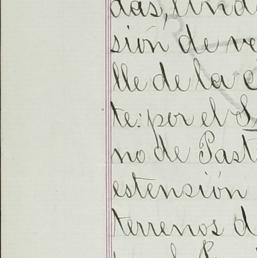 das, lind
sión de ve
lle de la c
te: por el S
no de Past
estensión
terrenos d